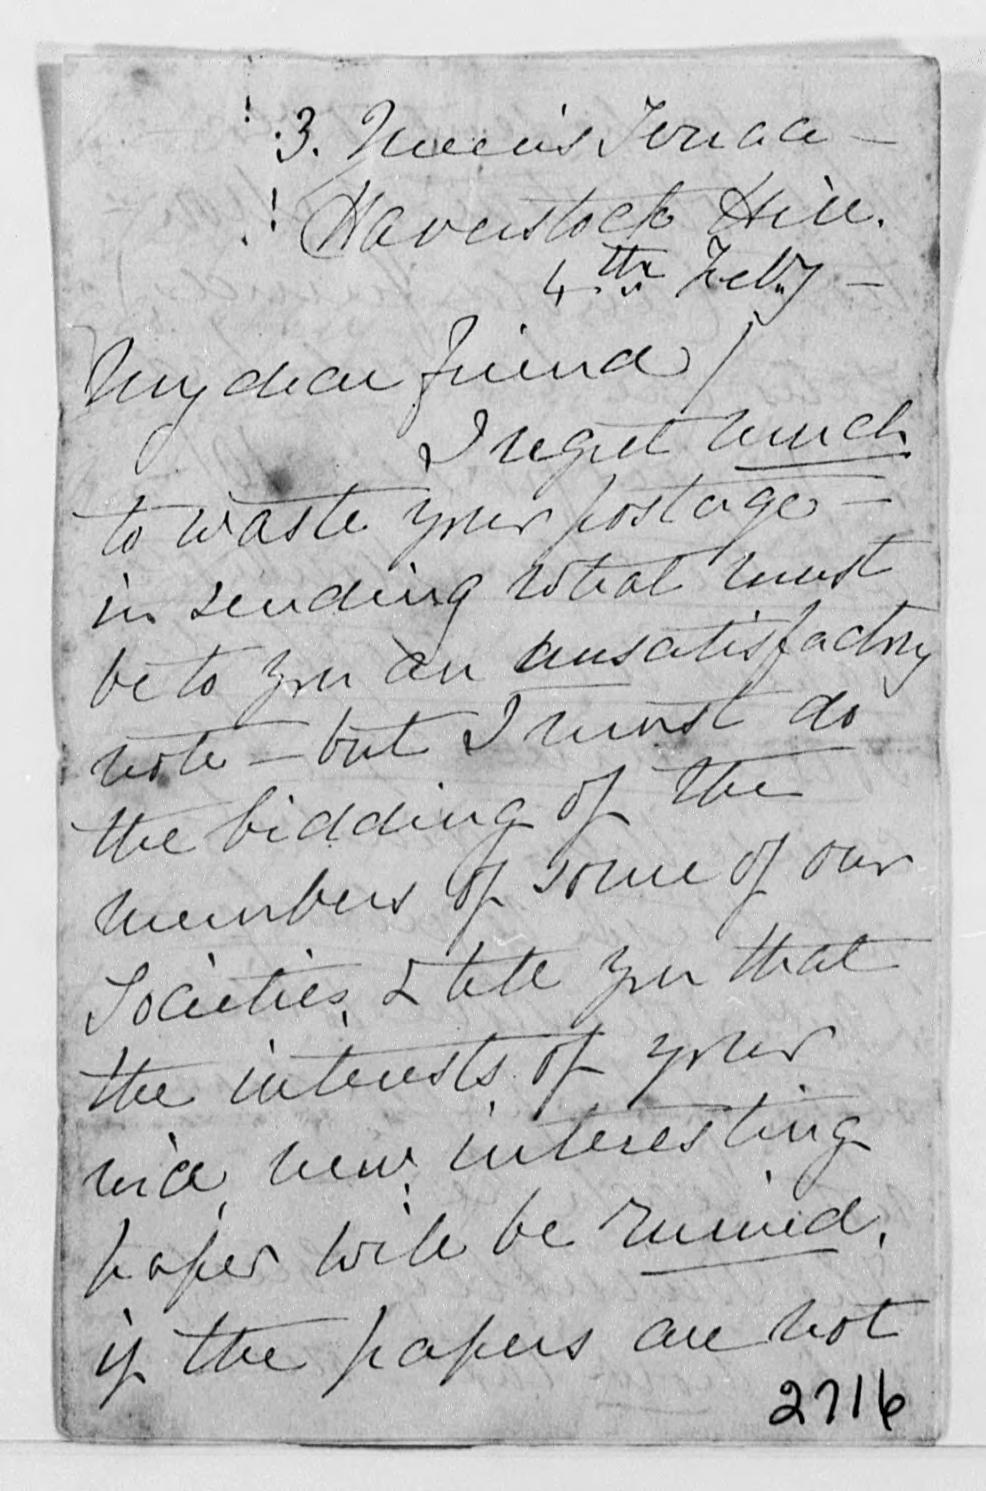 3. Queen's Terrace —
Haverstock Hill.
4th Feby —
My dear friend /
I regret much
to waste your postage —
in sending what must
be to you an unsatisfactory
note — but I must do
the bidding of the
members of some of our
Societies, & tell you that
the interests of your
nice, new, interesting
paper will be ruined,
if the papers are not
2716